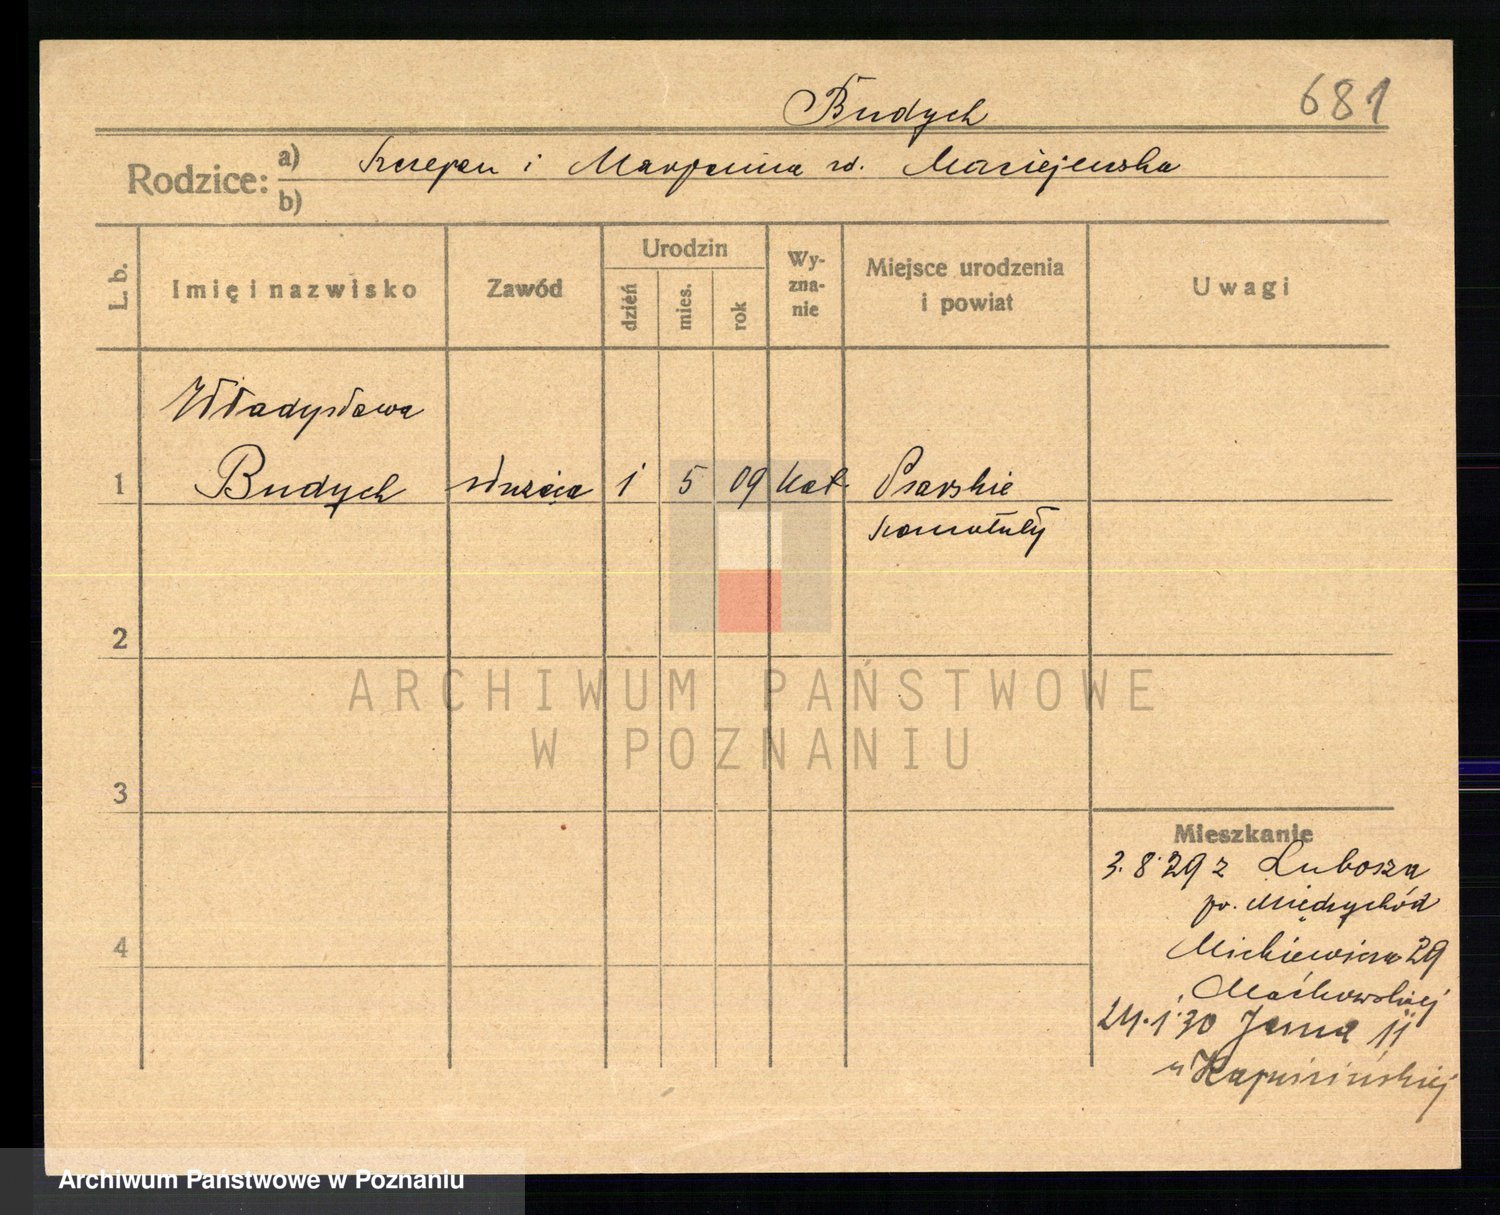 Budych 681
Rodzice: a) Szczepan i Marjanna rd. Maciejewska
b)
L. b. Imię i nazwisko Zawód Urodzin dzień mies. rok Wyznanie Miejsce urodzenia i powiat Uwagi
Władysława
1 Budych służąca 1 5 09 kat. Psarskie
Szamotuły
2
3
4
Mieszkanie
3.8.29 z Lubosza
pw. Międzychód
Mickiewicza 29
Maćkowskiej
24.1.30 Jasna 11
u Kapuścińskiej
ARCHIWUM PAŃSTWOWE
W POZNANIU
Archiwum Państwowe w Poznaniu